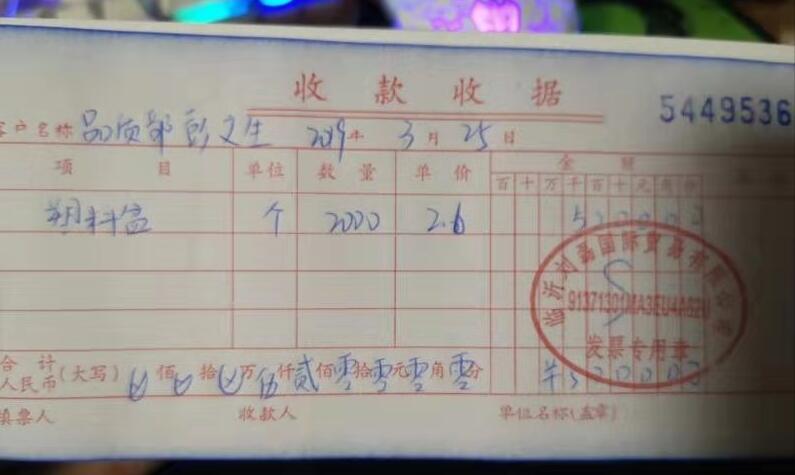 收款收据
5449536
客户名称 品质部 彭文生 2019年 3月 25日
项目 单位 数量 单价 金额
百十万千百十元角分
塑料盆 个 2000 2.6 520000
临沂刘 国际贸易有限公司
发票专用章
合计人民币(大写) ⊗佰⊗拾⊗万伍仟贰佰零拾零元零角零分 ¥520000
填票人 收款人 单位名称(盖章)